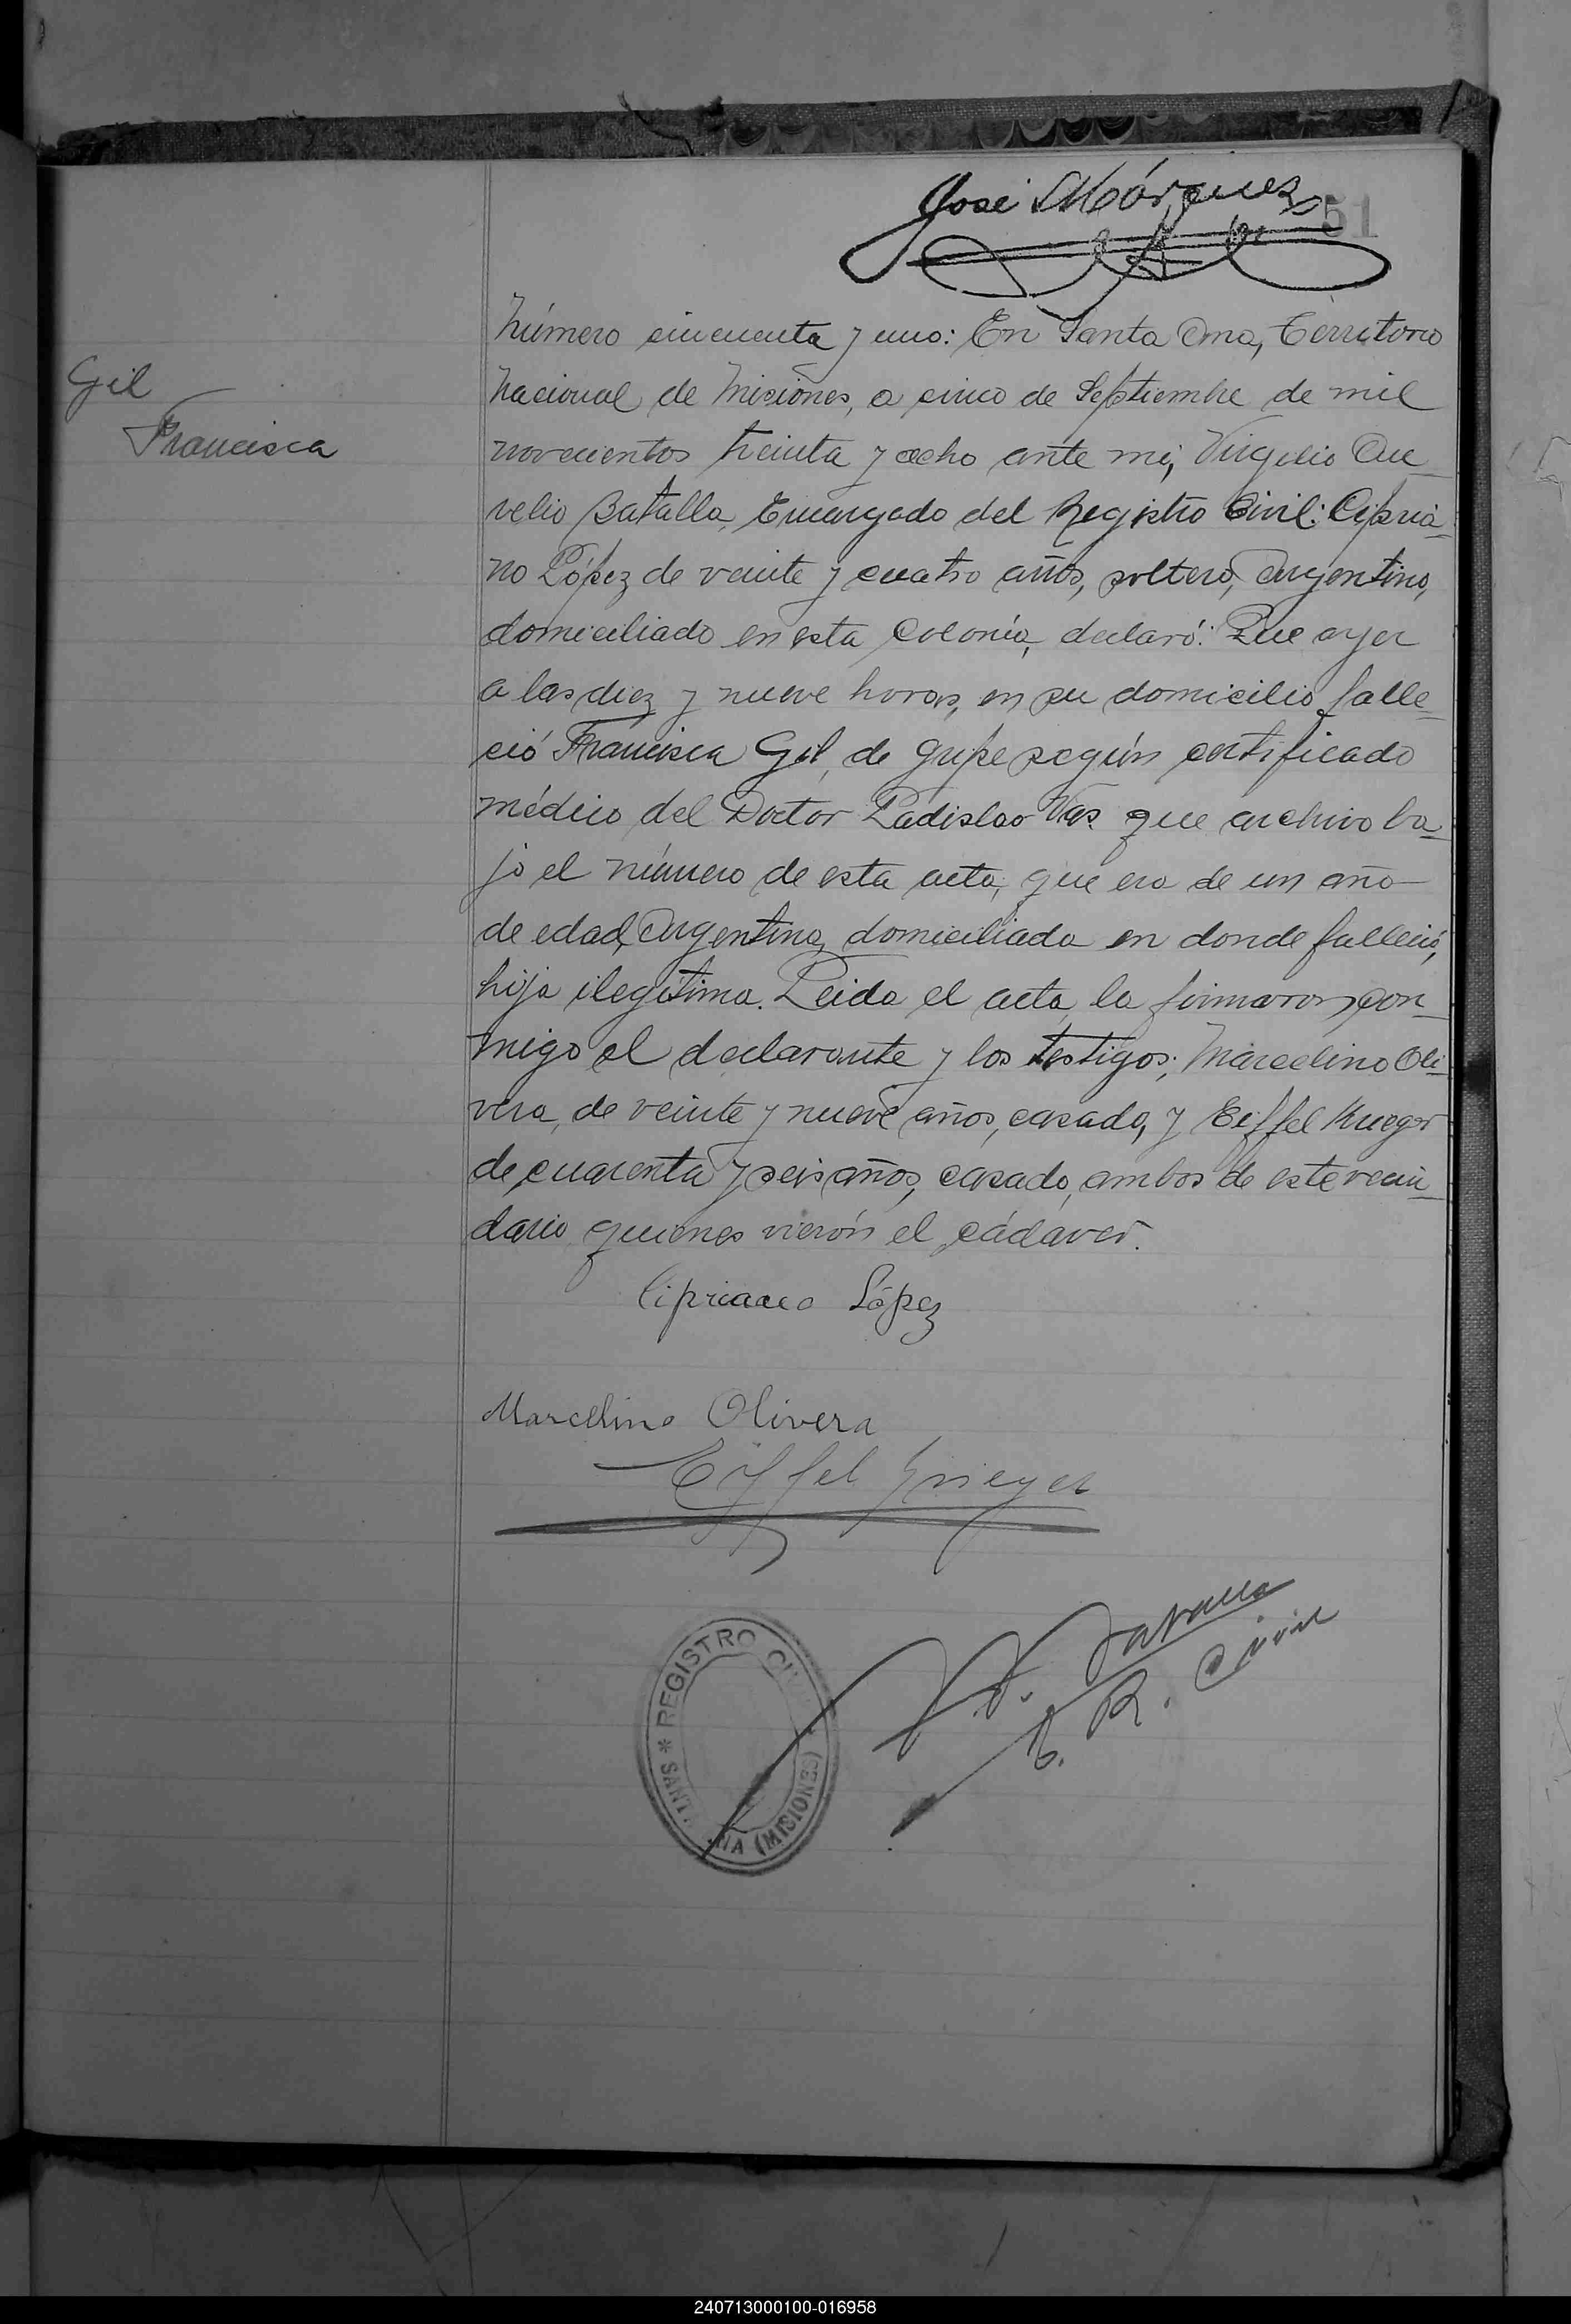 José Márquez
51
Número cincuenta y uno: En Santa Ana, Territorio
Nacional de Misiones, a cinco de Septiembre de mil
novecientos treinta y ocho ante mí, Virgilio Au-
Gil
Francisca
relio Batalla, Encargado del Registro Civil: Cipria-
no López de veinte y cuatro años, soltero, argentino,
domiciliado en esta Colonia, declaró: Que ayer
a las diez y nueve horas, en su domicilio falle-
ció Francisca Gil, de gripe según certificado
médico del Doctor Ladislao Vas que archivo ba-
jo el número de esta acta, que era de un año
de edad, Argentina, domiciliada en donde falleció,
hija ilegítima. Leida el acta, la firmaron con-
migo el declarante y los testigos; Marcelino Oli-
vera, de veinte y nueve años, casado, y Eiffel Krieger
de cuarenta y seis años, casado, ambos de este vecin-
dario quienes vierón el cádáver.
Cipriano López
Marcelino Olivera
Eiffel Krieger
V. A. Batalla
E. R. Civil
* REGISTRO CIVIL
SANTA ANA (MISIONES)
240713000100-016958